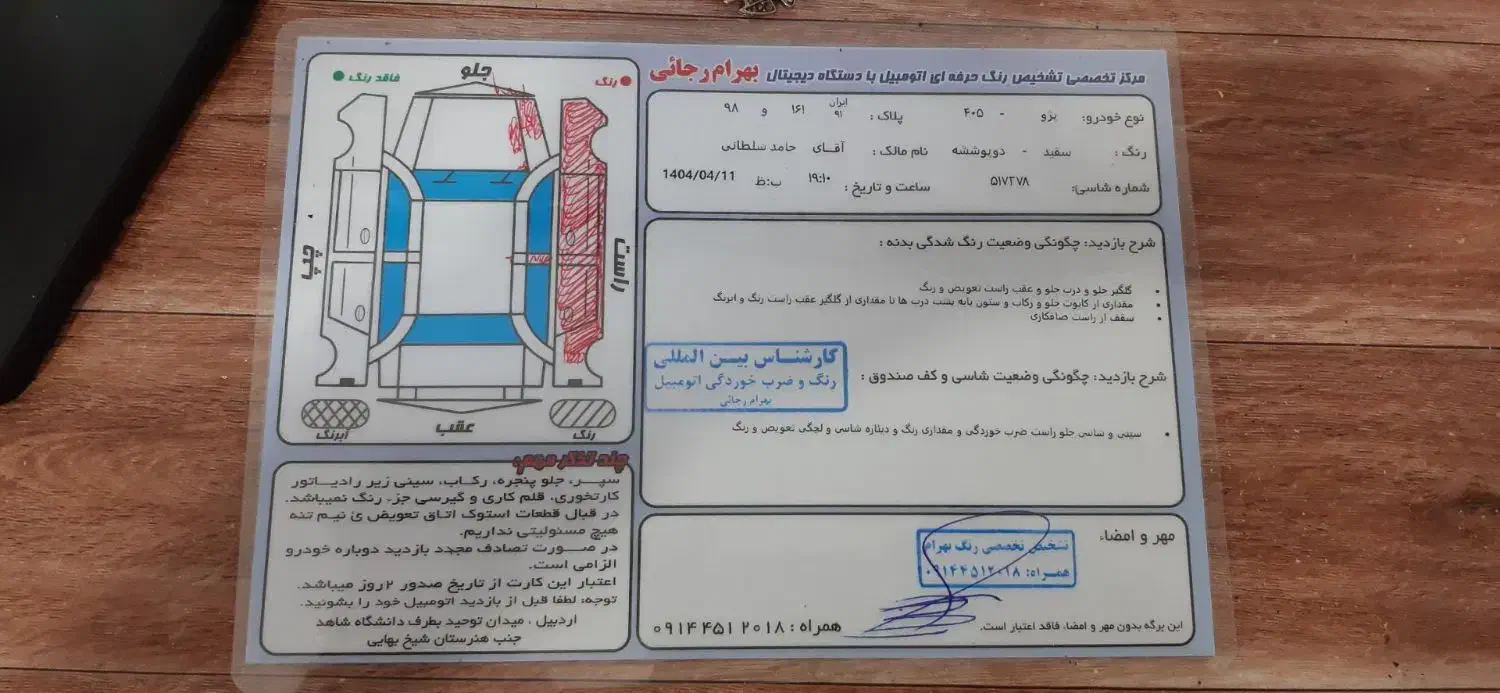 مرکز تخصصی تشخیص رنگ حرفه ای اتومبیل با دستگاه دیجیتال بهرام رجائی
نوع خودرو: پژو - ۴۰۵ پلاک: ایران ۹۱ ۱۶۱ و ۹۸
رنگ: سفید - دوپوششه نام مالک: آقای حامد سلطانی
شماره شاسی: ۵۱۷۲۷۸ ساعت و تاریخ: ۱۹:۱۰ ب:ظ 1404/04/11
شرح بازدید: چگونگی وضعیت رنگ شدگی بدنه:
گلگیر جلو و درب جلو و عقب راست تعویض و رنگ
مقداری از کاپوت جلو و رکاب و ستون پایه پشت درب ها تا مقداری از گلگیر عقب راست رنگ و ابرنگ
سقف از راست صافکاری
کارشناس بین المللی
رنگ و ضرب خوردگی اتومبیل
بهرام رجائی
شرح بازدید: چگونگی وضعیت شاسی و کف صندوق:
سینی و شاسی جلو راست ضرب خوردگی و مقداری رنگ و دیئاره شاسی و لچگی تعویض و رنگ
مهر و امضاء
تشخیص تخصصی رنگ بهرام
همراه: ۰۹۱۴۴۵۱۲۰۱۸
این برگه بدون مهر و امضاء، فاقد اعتبار است.
همراه: ۰۹۱۴ ۴۵۱ ۲۰۱۸
رنگ
فاقد رنگ
جلو
راست
چپ
عقب
رنگ
آبرنگ
چند تذکر مهم:
سپــر، جلو پنجره، رکـاب، سینی زیر رادیـاتور
کارتخوری، قلم کاری و گیرسی جزء رنگ نمیباشد.
در قبال قطعات استوک اتاق تعویض ئ نیم تنه
هیچ مسئولیتی نداریم.
در صــورت تصادف مجدد بازدید دوباره خودرو
الزامی است.
اعتبار این کارت از تاریخ صدور ۲ روز میباشد.
توجه: لطفا قبل از بازدید اتومبیل خود را بشوئید.
اردبیل، میدان توحید بطرف دانشگاه شاهد
جنب هنرستان شیخ بهایی